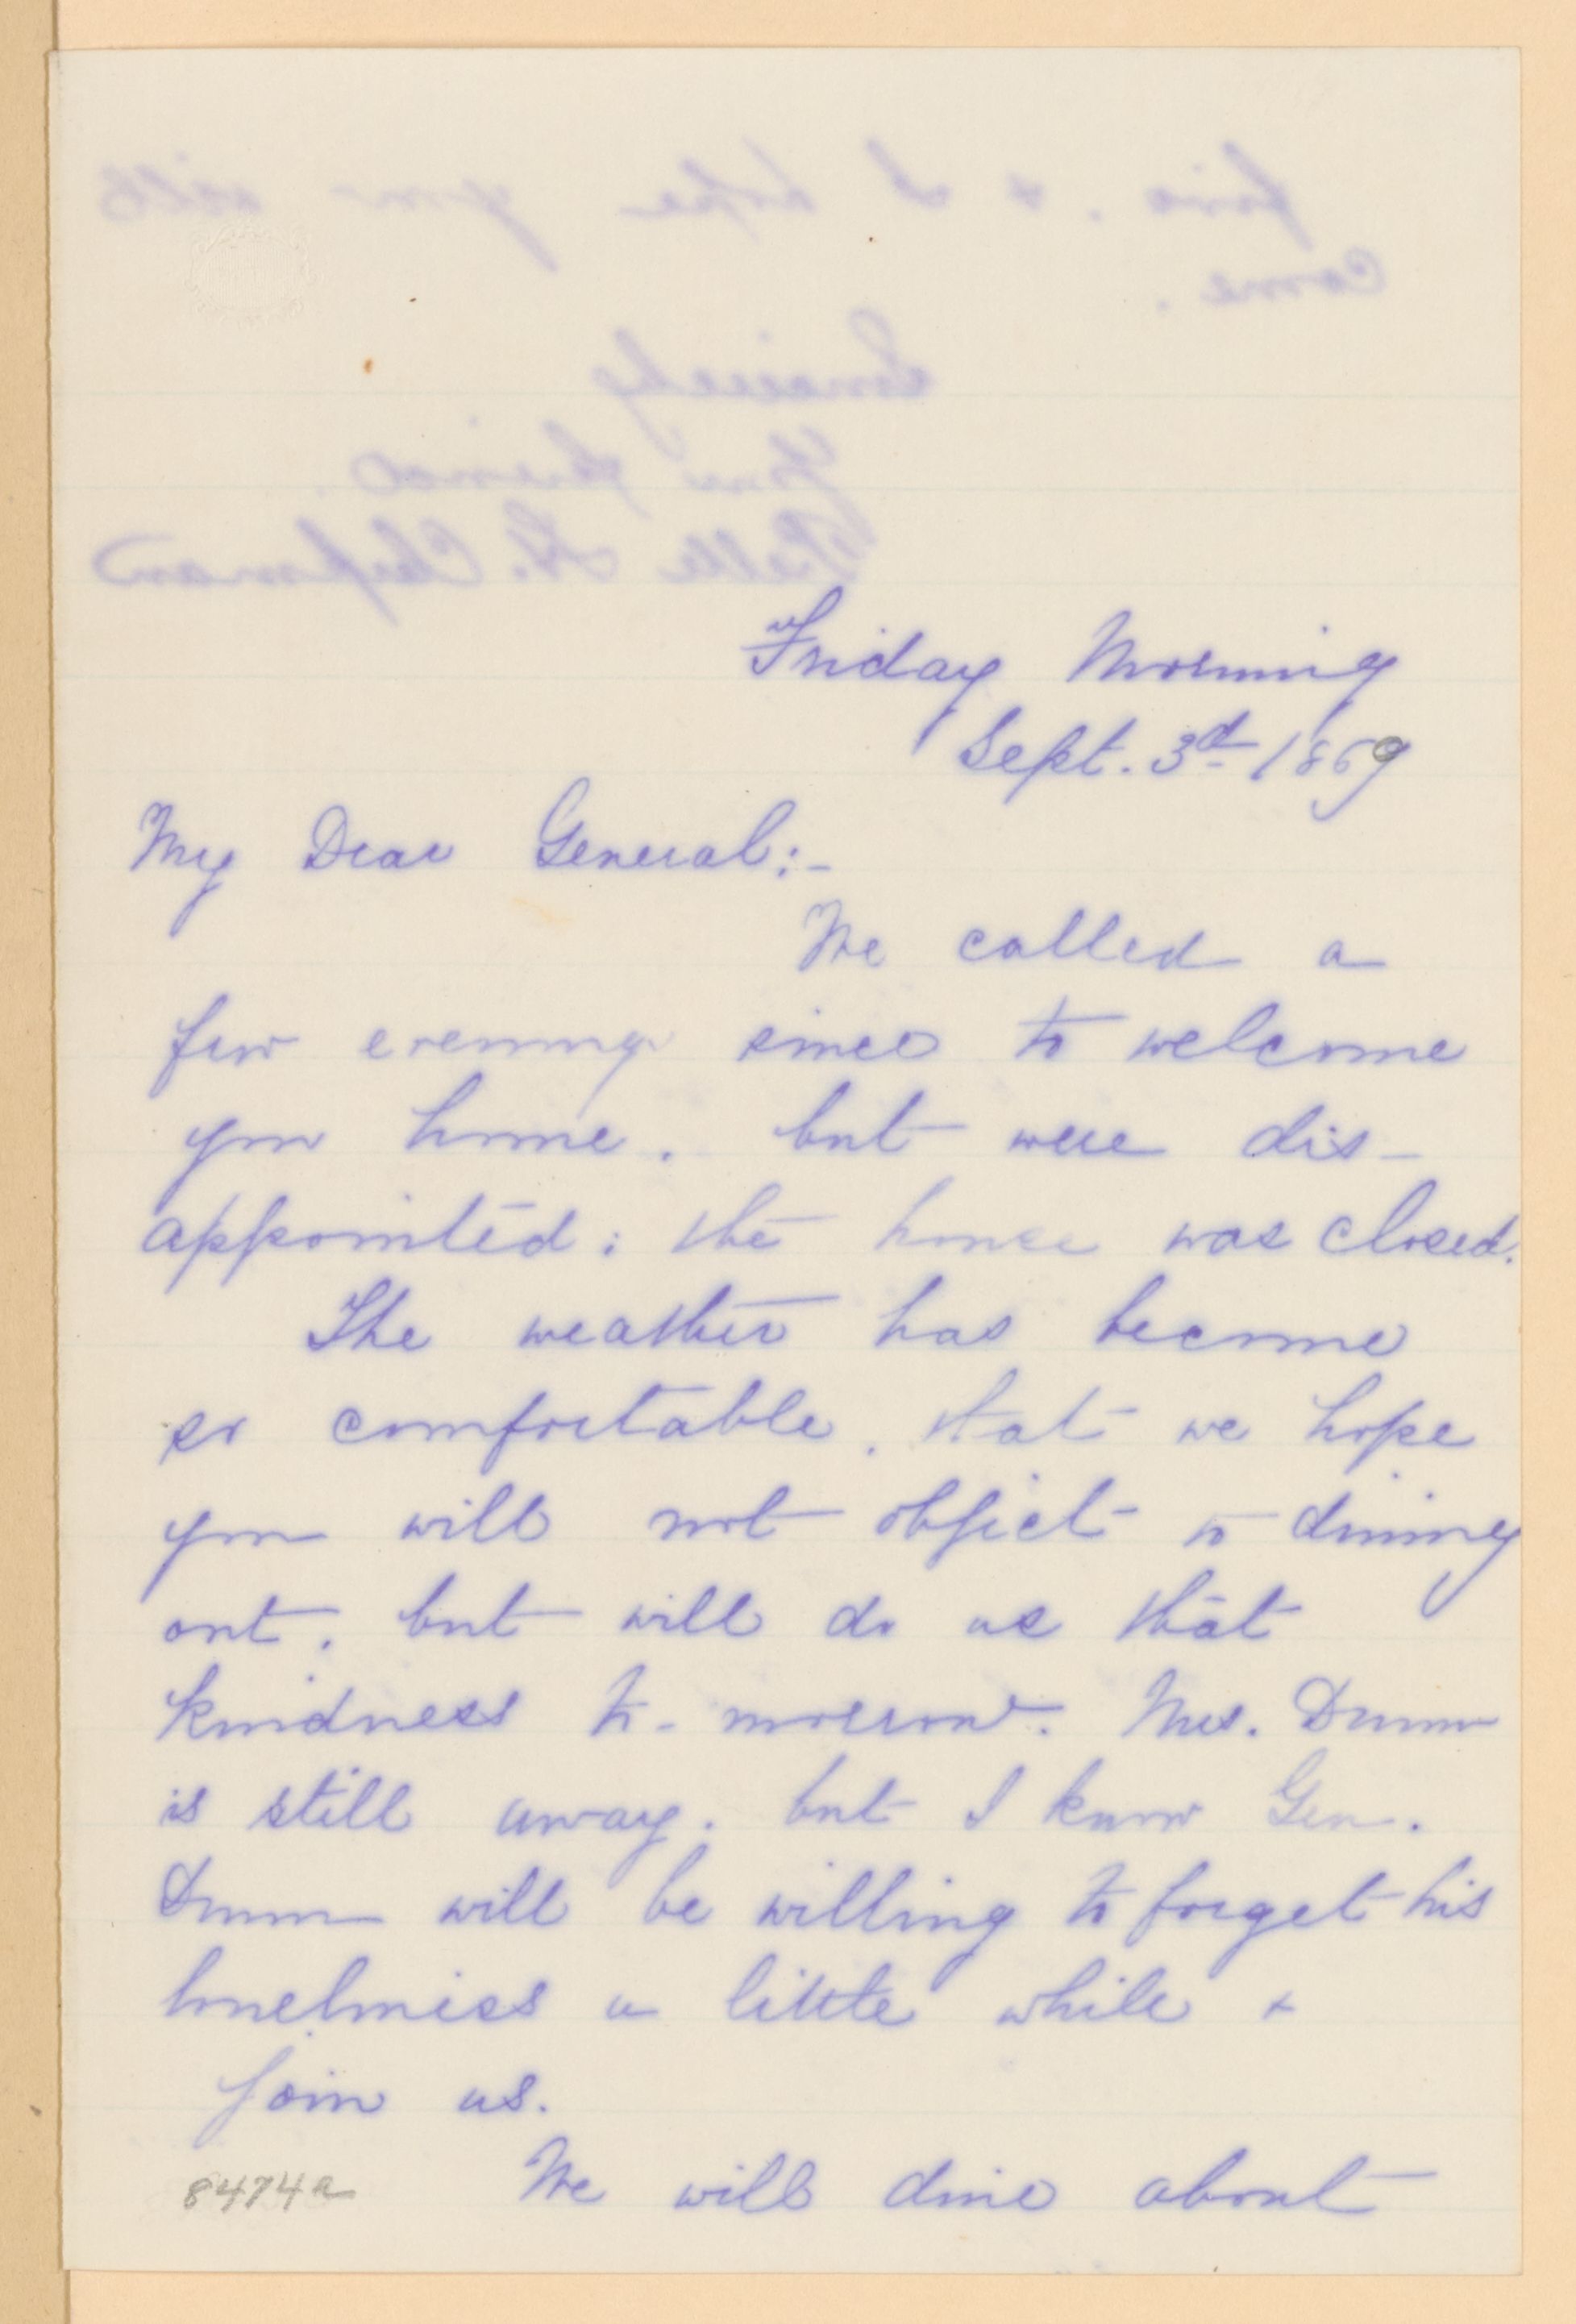 five. & I hope you will
come.
Sincerely
Your friend.
Belle H. Chapman
Friday Morning
Sept. 3d 1869
My Dear General:-
We called a
few evenings since to welcome
you home. but were dis-
appointed; the house was closed.
The weather has become
so comfortable. that we hope
you will not object to dining
out. but will do us that
kindness to-morrow. Mrs. Dunn
is still away. but I know Gen.
Dunn will be willing to forget his
loneliness a little while &
join us.
We will dine about
8474a